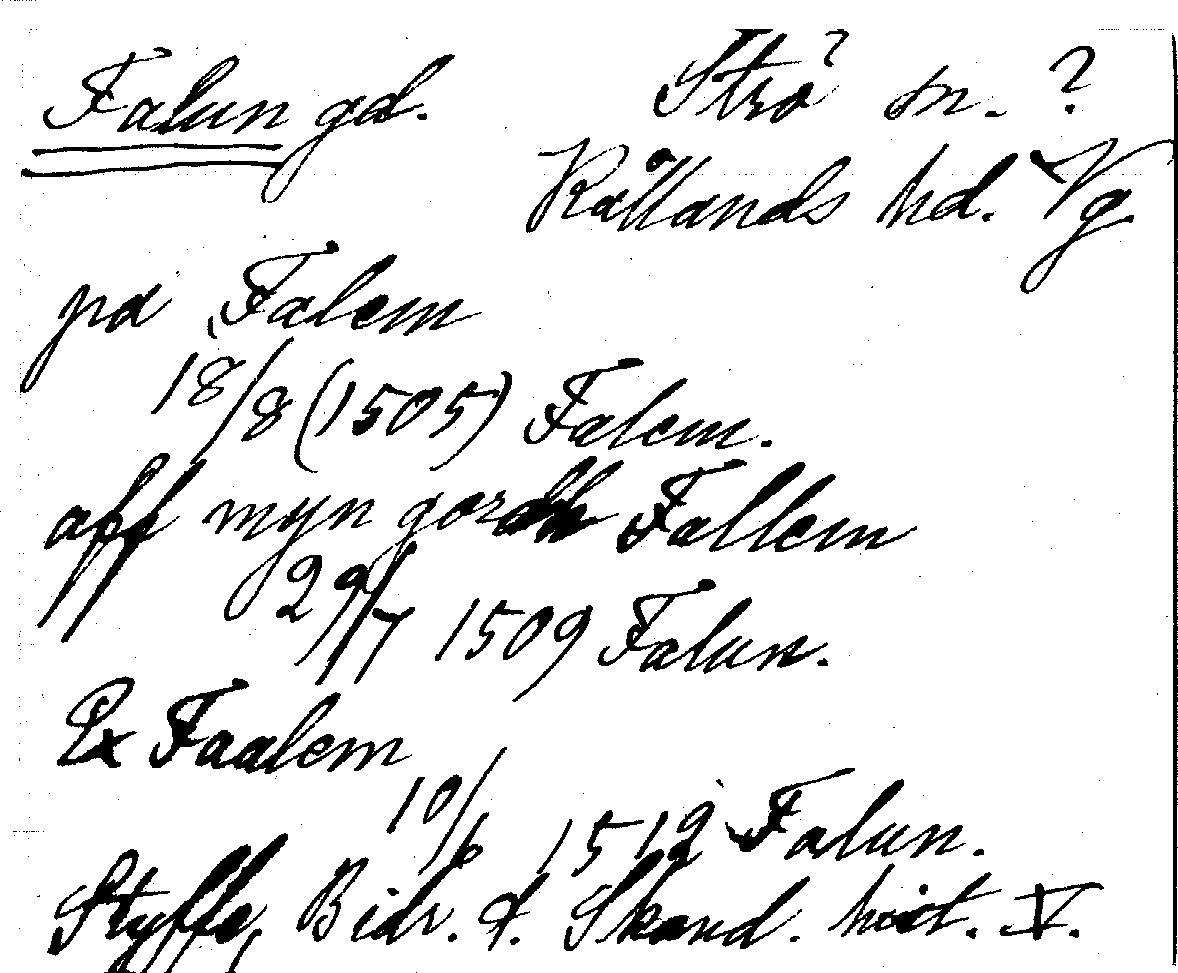 Falun gd. Strö sn. ?
Kållands hd. Vg
pa Falem
18/8 (1505) Falem.
aff myn gordh Fallem
29/7 1509 Falun.
Ex Faalem
10/6 1512 Falun.
Styffe, Bidr. t. Skand. hist. V.